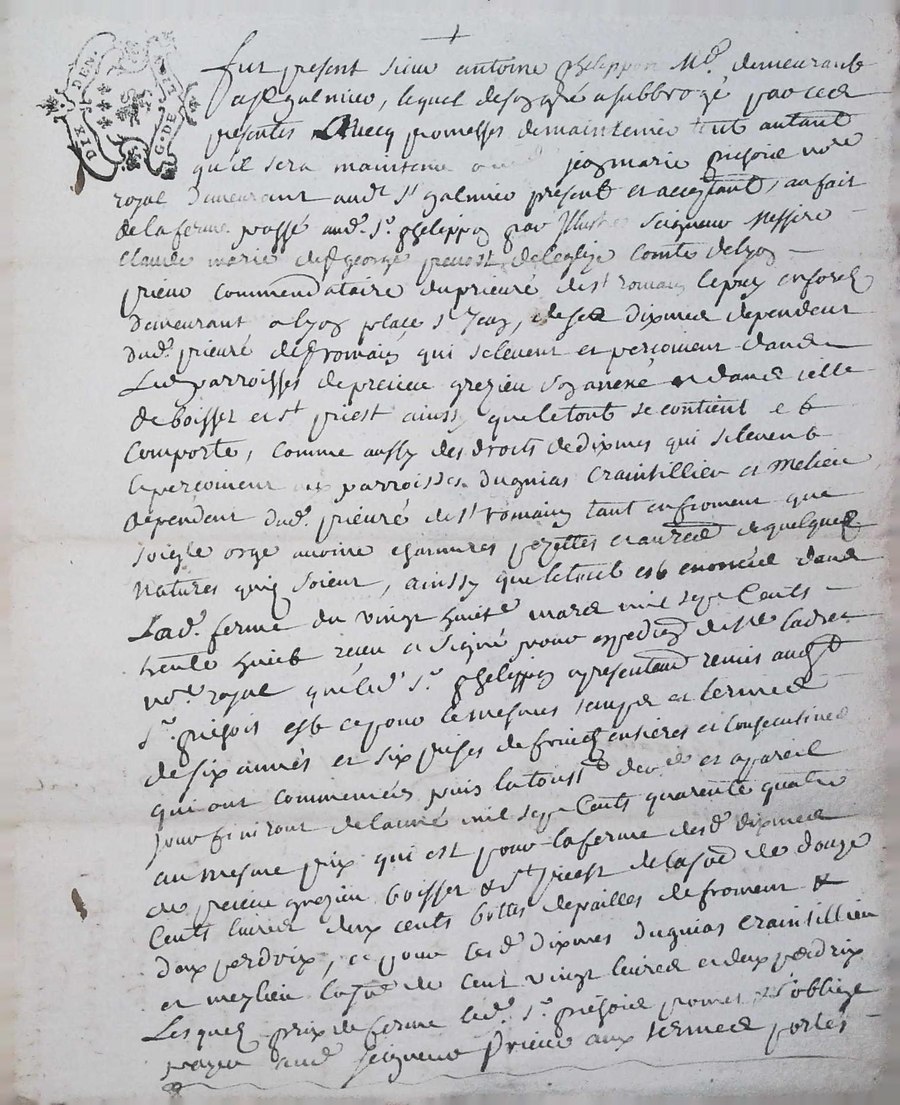 DIX DEN.
G. DE L
fut present sieur antoine phelippon Md. demeurant
a st galmier, lequel de son gré a subbrogé par ces
presentes avecq promesses de maintenir tout autant
qu'il sera maintenu jean marie prejoie nore
royal demeurant aud. st galmier present et acceptant, au fait
de la ferme passé aud. sr. phelippon par Illustre seigneur Messire
Claude marie de st george precost de leglize comte de lyon
prieur commendataire du prieuré de st romain le puy en forest
demeurant a lyon place st Jean, de ses dixmes dependent
dud. prieuré de st romain qui se levent et perçoivent dans
Les parroisses de precieu grezieu son annexe et dans celle
de boisset et st priest ainsy que le tout se contient et
Comporte, comme aussy des droits de dixmes qui se levent
et perçoivent aux parroisses d'ugnias Craintillieu et Melieu
dependent dud. prieuré de st romain tant en froment que
soigle orge avoine pezettes et autres de quelques
Natures quils soient, ainssy que le tout est enoncée dans
Lad. ferme du vingt huite. mars mil sept Cents
trente huit receu et signé pour expedition
nore. royal que led. sr. phelippon a presentement remis aud.
sr. prejoie est ce pour le mesme temps et termes
de six années et six prises de fruits entieres et consecutives
qui ont commencés puis la toust. et apareil
jour finiront de lannée mil sept Cents quarente quatre
au mesme prix qui est pour la ferme desd. dixmes
de precieu grezieu boisset & st priest de la some de douze
Cents livres deux cents bottes de pailles de froment &
deux perdrix, et pour lesd. dixmes d'ugnias Craintillieu
et meylieu la some de cent vingt livres et deux perdrix
Lesquels prix de ferme led. sr. prejoie promet & s'oblige
payer aud. seigneur Prieur aux termes portés